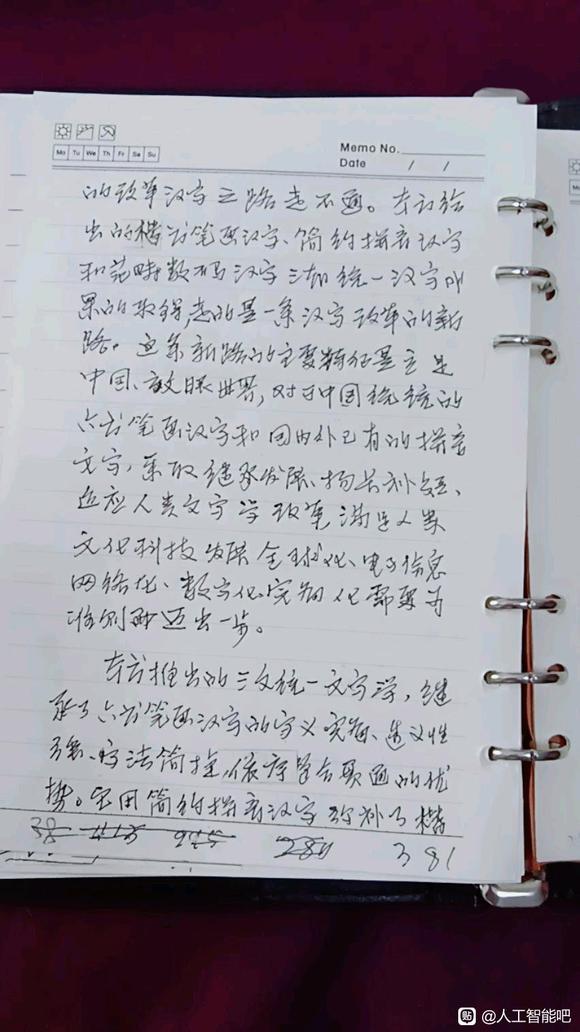 Mo Tu We Th Fr Sa Su
Memo No.
Date / /
的改革汉字之路走不通。本书给
出的楷书笔画汉字、简约拼音汉字
和范畴数码汉字三加统一汉字成
果的取得,走的是一条汉字改革的新
路。这条新路的主要特征是立足
中国、放眼世界,对于中国传统的
六书笔画汉字和国内外已有的拼音
文字,采取继承发展、扬长补短、
适应人类文字学改革满足人类
文化科技发展全球化、电子信息
网络化、数字化、智能化需要为
准则而迈出一步。
本书推出的三文统一文字学,继
承了六书笔画汉字的字义、达义性
强、方法简捷、依序组合联通的优
势。它用简约拼音汉字弥补了楷
38 413 284
381
@人工智能吧